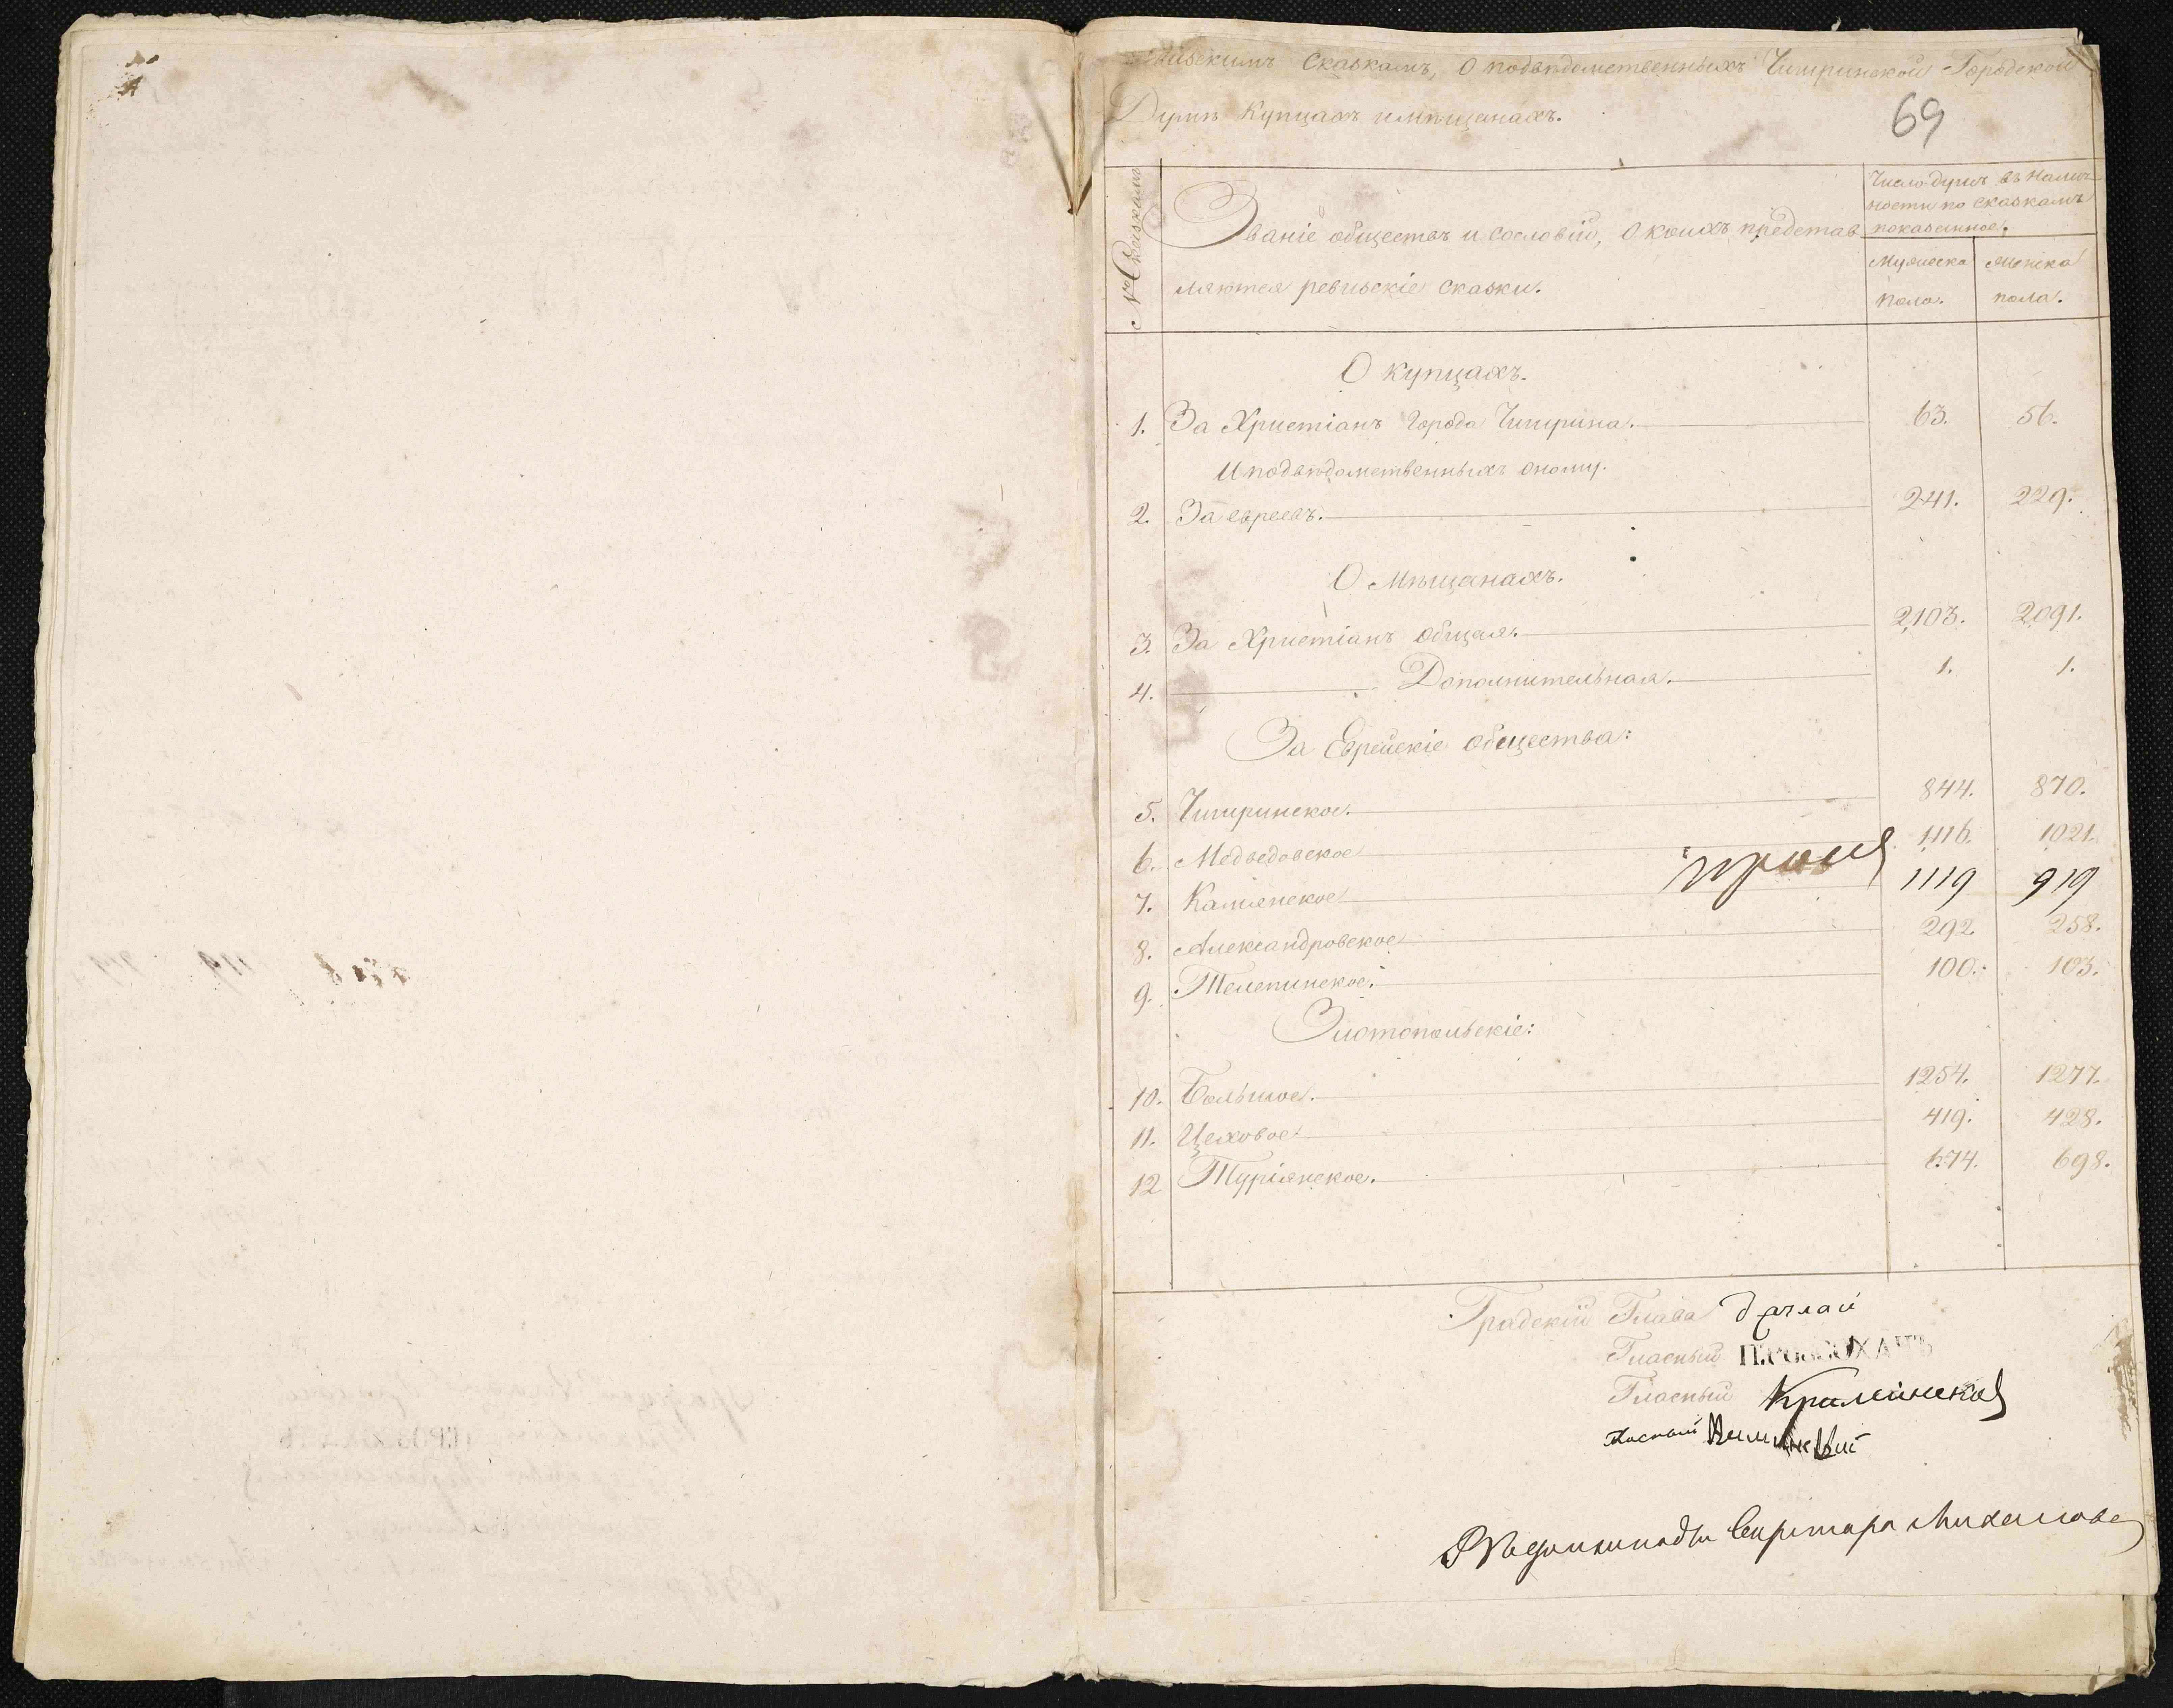 Сказкамъ, О подвѣдомственныхъ Чигринской Городской
Думѣ Купцахъ и мѣщанахъ.
69
№ Сказкамъ
Званіе обществъ и сословій, О коихъ представ
ляются ревизскіе сказки.
Число душъ въ Налич
ности по сказкамъ
показанное.
Мужеска пола.
женска пола.
О купцахъ.
1. За Христіанъ Города Чигрина. 63. 56.
И подвѣдомственныхъ оному.
2. За евреевъ. 241. 229.
О Мѣщанахъ.
3. За Христіанъ общая. 2,103. 2,091.
4. Дополнительная. 1. 1.
За Еврейскіе общества:
5. Чигринское. 844. 870.
6. Медведовское 1,116. 1,021.
7. Камянское 1119 919
8. Александровское 292. 258.
9. Телепинское. 100. 103.
Злотопольскіе:
10. Большое. 1254. 1277.
11. Цеховое. 419. 428.
12 Туріянское. 674. 698.
Градскій Глава
Гласный
Гласный
Гласный
Секретара